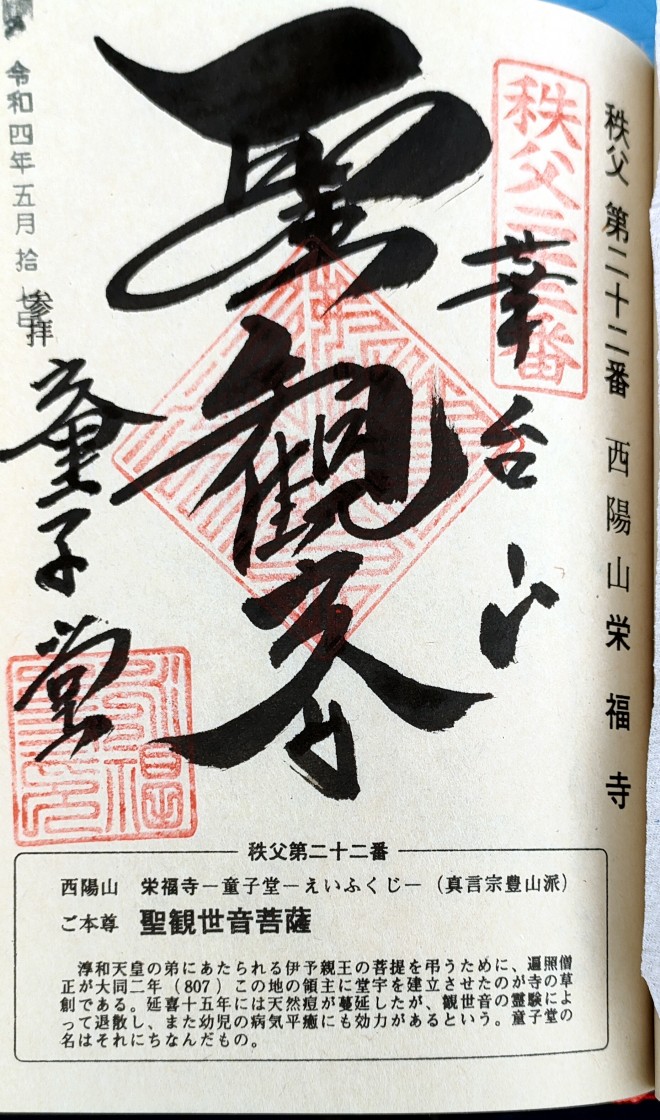 秩父 第二十二番 西陽山栄福寺
秩父二二番
華台山
聖観音
童子堂
令和四年五月拾
参拝
秩父第二十二番
西陽山 栄福寺－童子堂－えいふくじ－（真言宗豊山派）
ご本尊 聖観世音菩薩
淳和天皇の弟にあたられる伊予親王の菩提を弔うために、遍照僧
正が大同二年（807）この地の領主に堂宇を建立させたのが寺の草
創である。延喜十五年には天然痘が蔓延したが、観世音の霊験によ
って退散し、また幼児の病気平癒にも効力があるという。童子堂の
名はそれにちなんだもの。